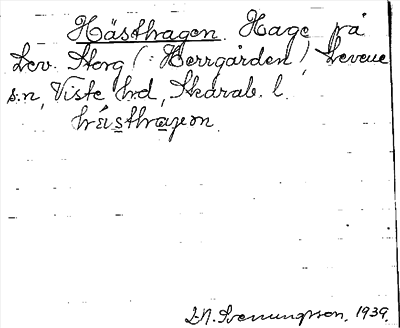 Hästhagen. Hage på
Lev. Storg (: Herrgården), Levene
s:n, Viste hd, Skarab. l.
hästhagen
Svenungsson, 1939.